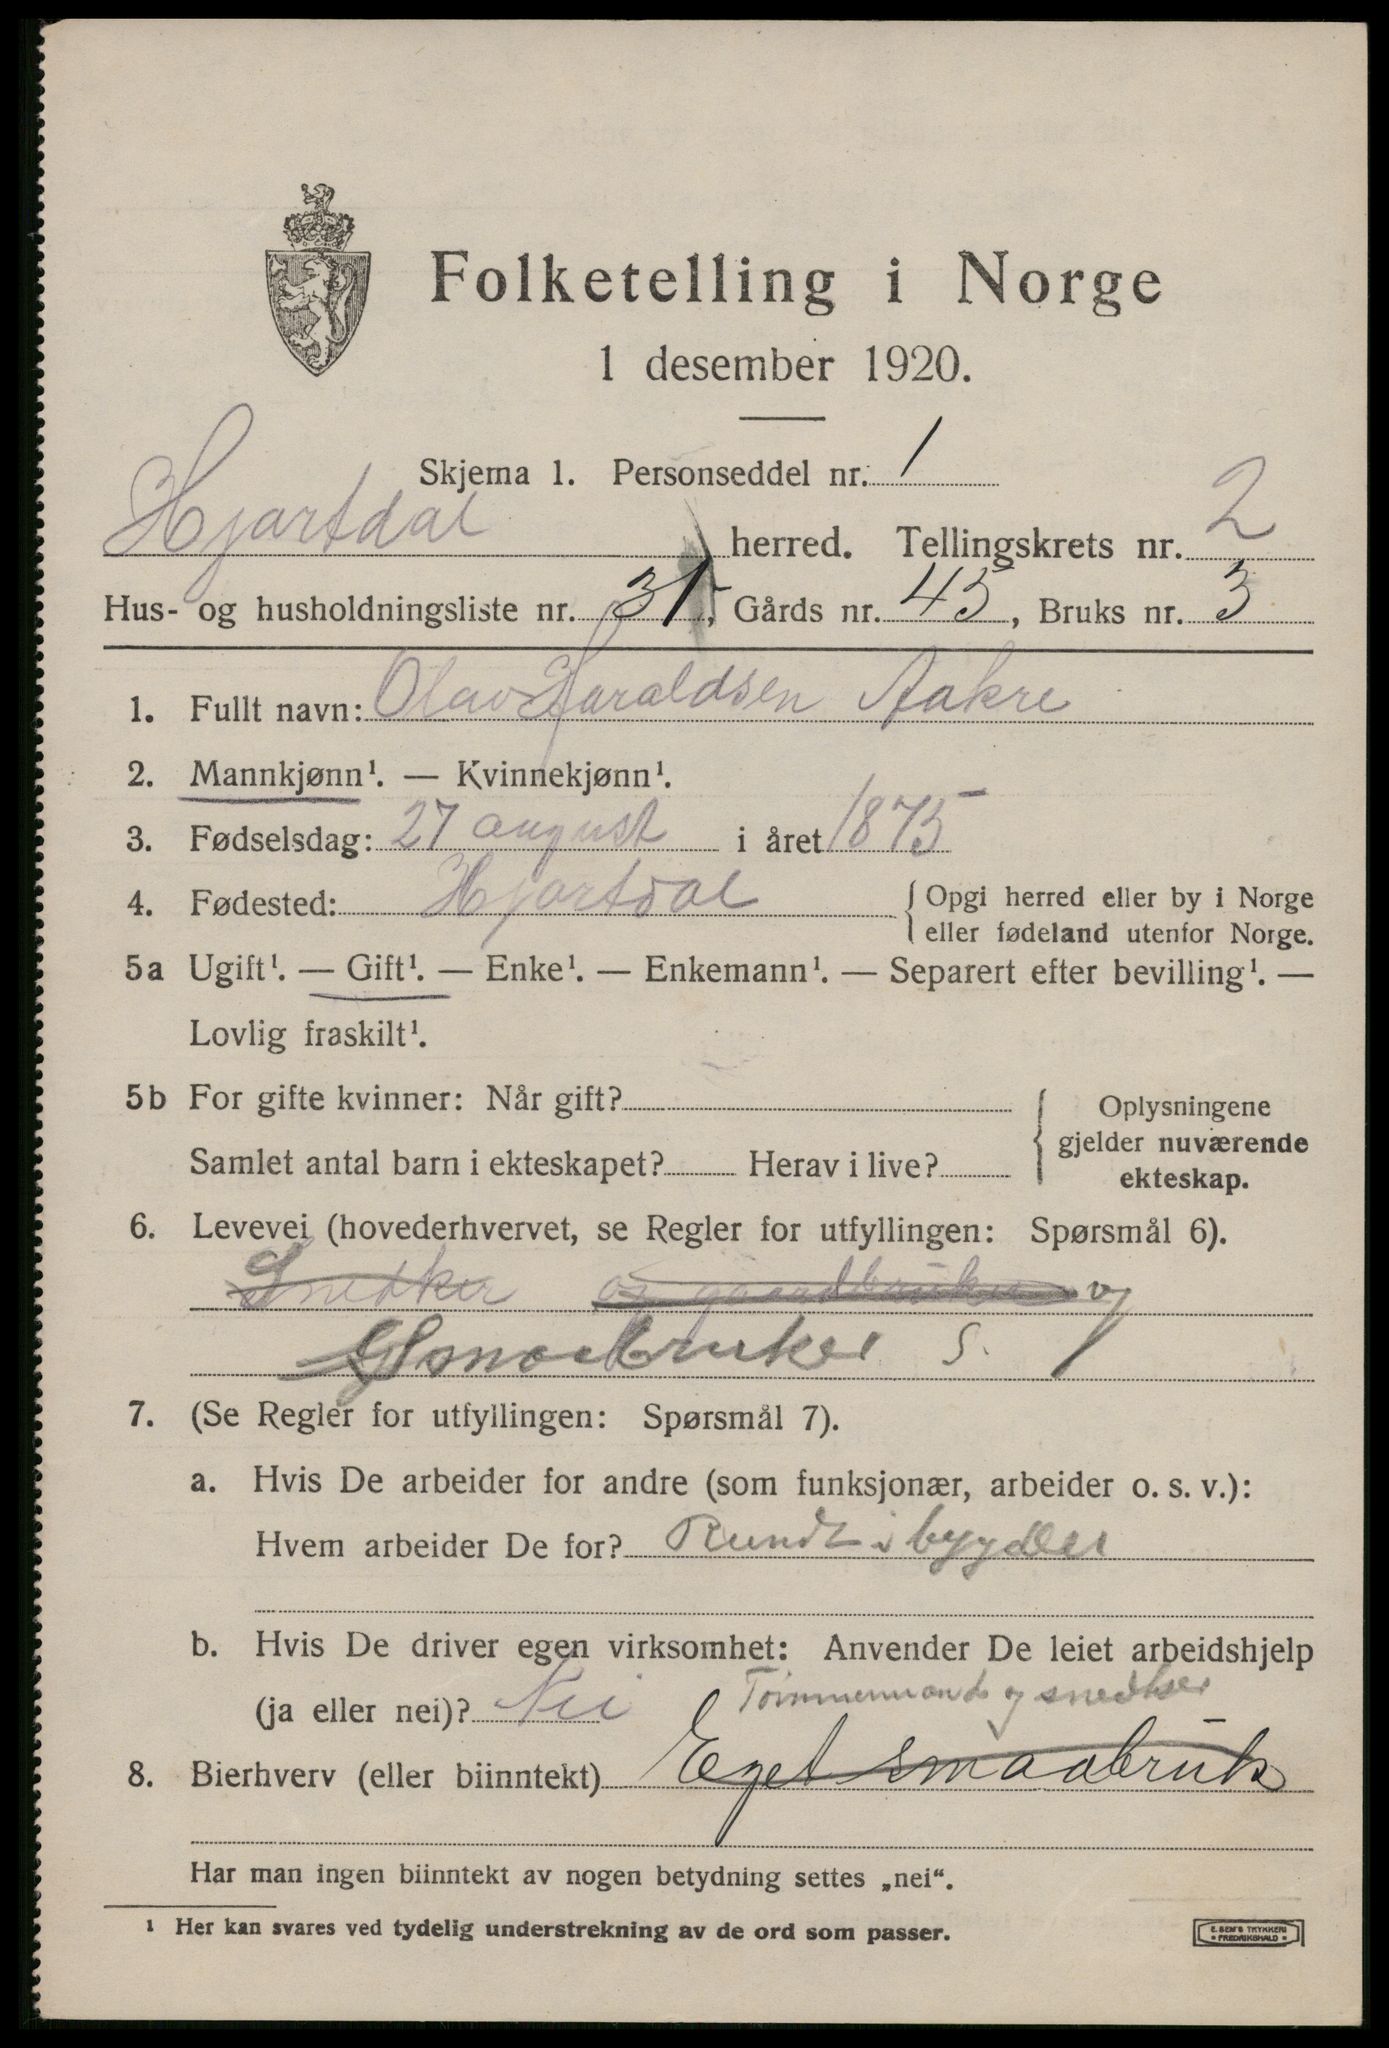 Folketelling i Norge
1 desember 1920.
Skjema 1. Personseddel nr. 1
Hjartdal herred. Tellingskrets nr. 2
Hus- og husholdningsliste nr. 31, Gårds nr. 45, Bruks nr. 3
1. Fullt navn: Olav Haraldsen Aakre
2. Mannkjønn¹. — Kvinnekjønn¹.
3. Fødselsdag: 27 august i året 1875
4. Fødested: Hjartdal { Opgi herred eller by i Norge
eller fødeland utenfor Norge.
5a Ugift¹. — Gift¹. — Enke¹. — Enkemann¹. — Separert efter bevilling¹. —
Lovlig fraskilt¹.
5b For gifte kvinner: Når gift?
Samlet antal barn i ekteskapet? Herav i live?
{ Oplysningene
gjelder nuværende
ekteskap.
6. Levevei (hovederhvervet, se Regler for utfyllingen: Spørsmål 6).
Snedker og gaardbruker og
Smaabruker S.
7. (Se Regler for utfyllingen: Spørsmål 7).
a. Hvis De arbeider for andre (som funksjonær, arbeider o. s. v.):
Hvem arbeider De for? Rundt i bygder
b. Hvis De driver egen virksomhet: Anvender De leiet arbeidshjelp
(ja eller nei)? Nei
Tømmermand og snedker
8. Bierhverv (eller biinntekt) Eget smaabruk
Har man ingen biinntekt av nogen betydning settes „nei“.
¹ Her kan svares ved tydelig understrekning av de ord som passer.
E. SEM'S TRYKKERI
FREDRIKSHALD